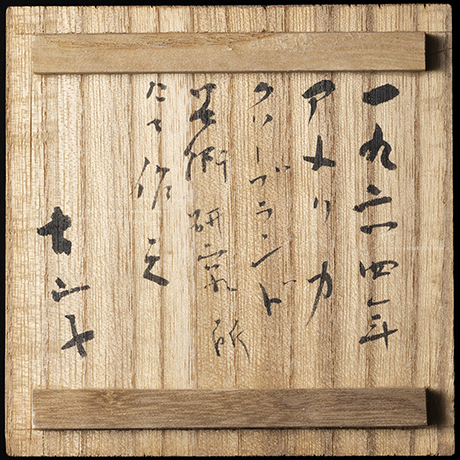 一九六四年
アメリカ
クリーブランド
芸術研究所
にて作之